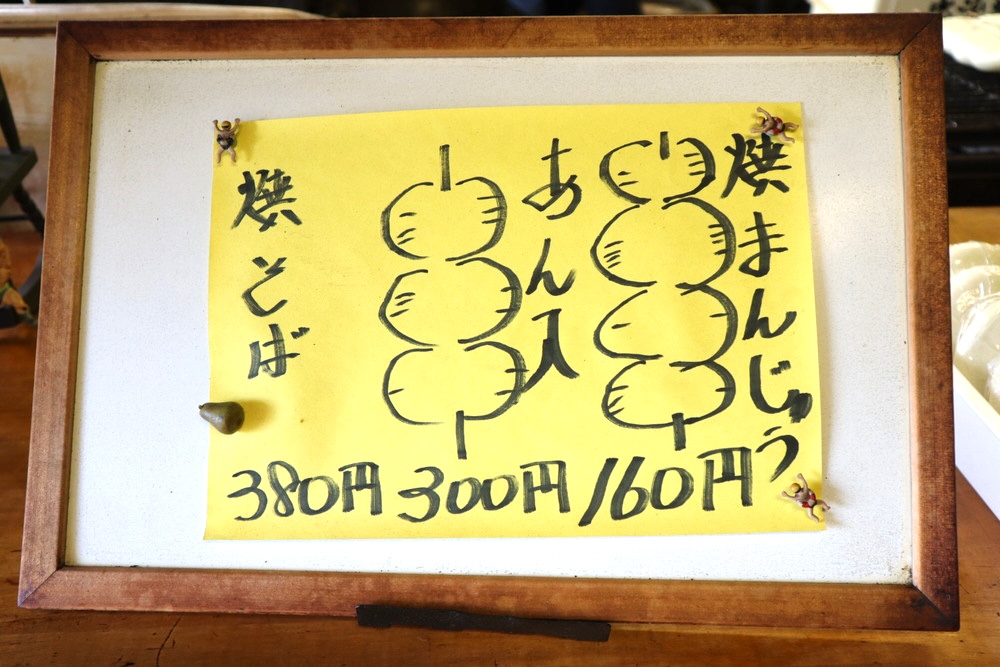 焼まんじゅう
160円
あん入
300円
焼そば
380円